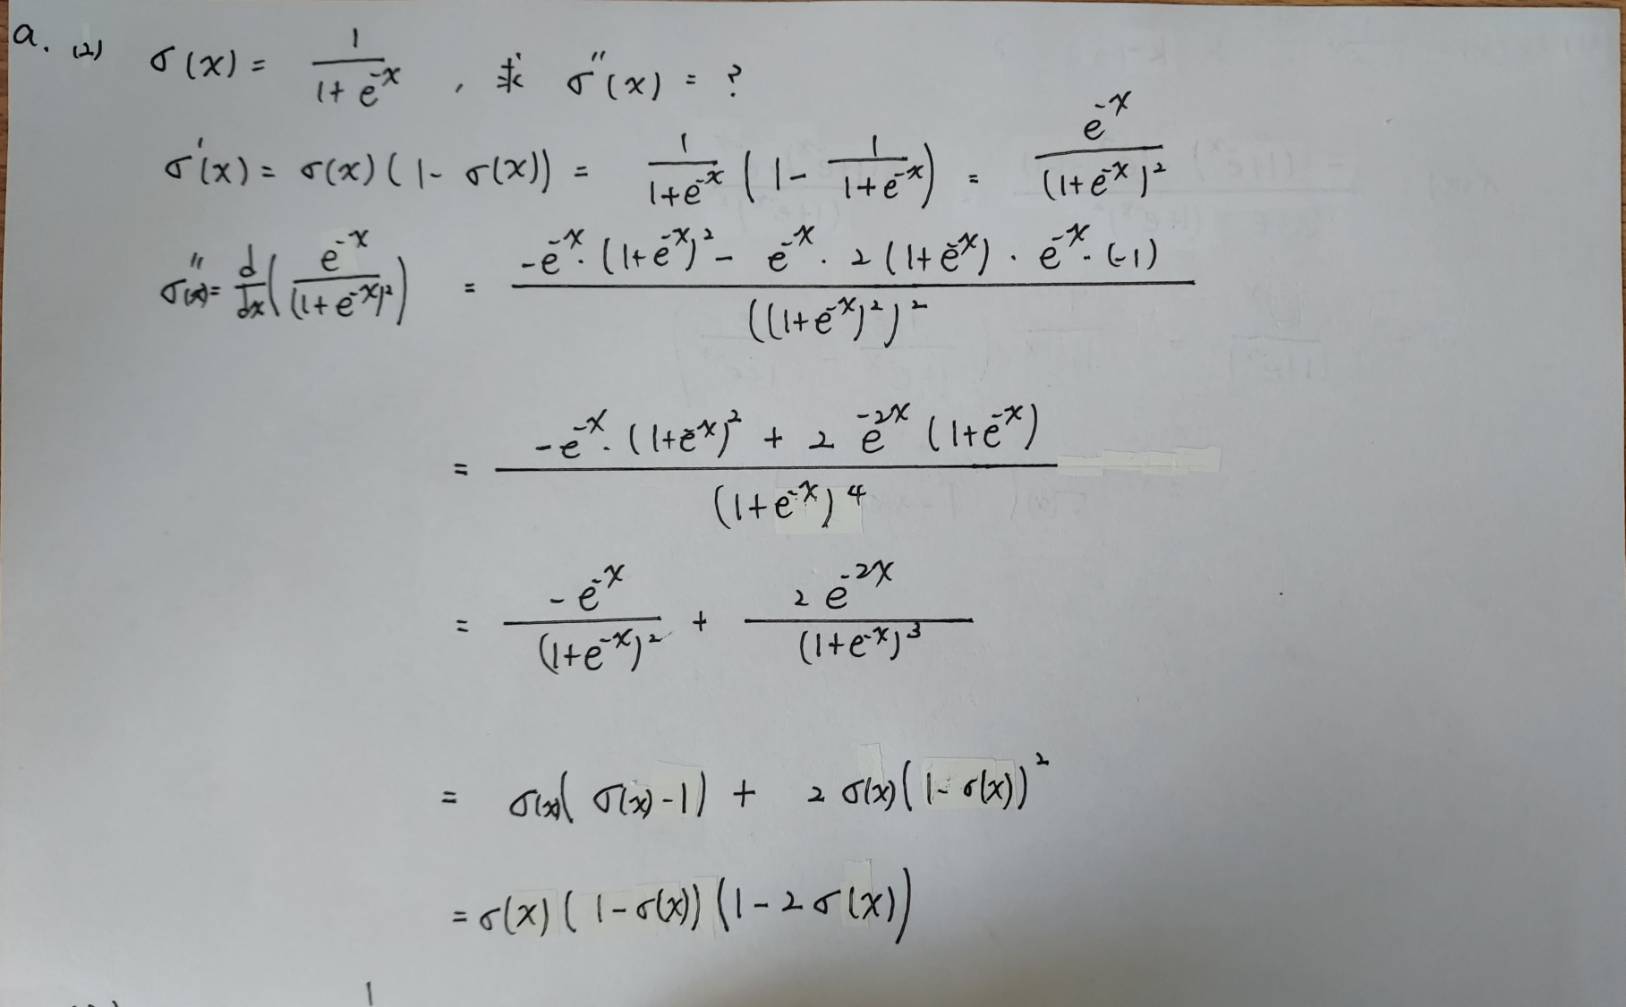 a. (2) σ(x) = 1/(1+e^-x) , 求 σ''(x) = ?
σ'(x) = σ(x)(1-σ(x)) = 1/(1+e^-x) (1 - 1/(1+e^-x)) = e^-x/(1+e^-x)^2
σ''(x) = d/dx (e^-x/(1+e^-x)^2) = (-e^-x · (1+e^-x)^2 - e^-x · 2(1+e^-x) · e^-x · (-1))/((1+e^-x)^2)^2
= (-e^-x · (1+e^-x)^2 + 2e^-2x (1+e^-x))/(1+e^-x)^4
= -e^-x/(1+e^-x)^2 + 2e^-2x/(1+e^-x)^3
= σ(x)(σ(x)-1) + 2σ(x)(1-σ(x))^2
= σ(x)(1-σ(x))(1-2σ(x))